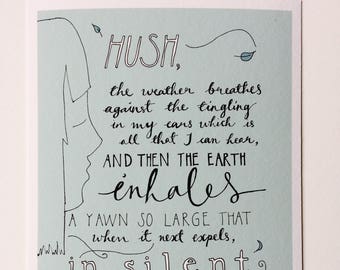 HUSH,
the weather breathes
against the tingling
in my ears which is
all that I can hear,
AND THEN THE EARTH
inhales
A YAWN SO LARGE THAT
when it next expels,
in silent